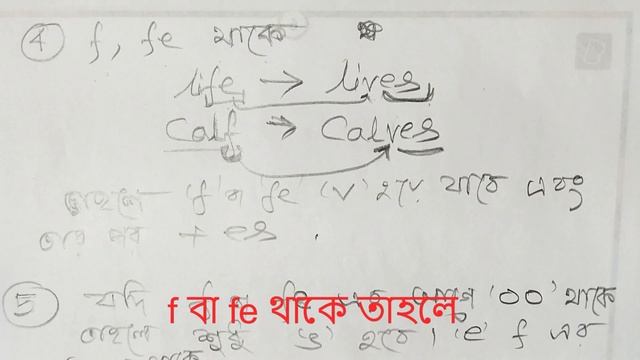 ④ f, fe থাকে
life → lives
Calf → Calves
তাহলে 'f' বা 'fe' 'v' হয়ে যাবে এবং
তার পর + es .
⑤ যদি 'oo' থাকে
f বা fe থাকে তাহলে
তাহলে শুধু 's' হবে। 'e' f এর